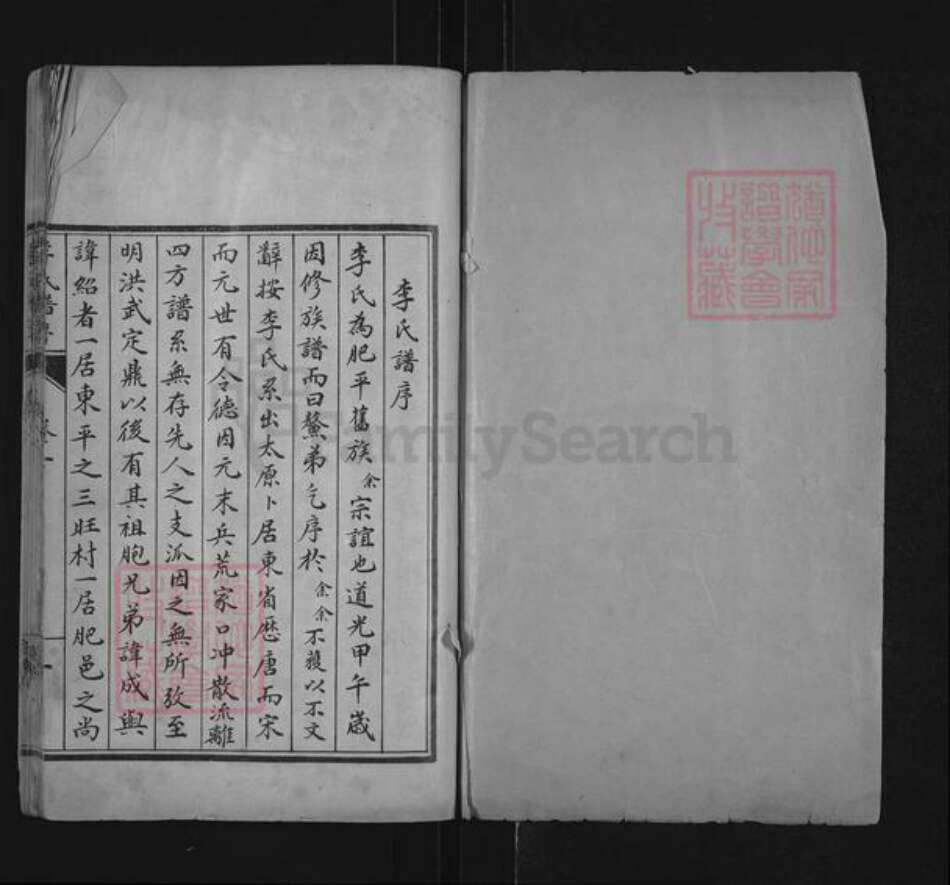 李氏譜序
李氏為肥平舊族余宗誼也道光甲午歲
因修族譜而曰鰲弟乞序於余余不獲以不文
辭按李氏系出太原卜居東省歷唐而宋
而元世有令德因元末兵荒家口冲散流離
四方譜系無存先人之支派因之無所攷至
明洪武定鼎以後有其祖胞兄弟諱成與
諱紹者一居東平之三旺村一居肥邑之尚
李氏譜序 卷一
FamilySearch
譜學會
收藏